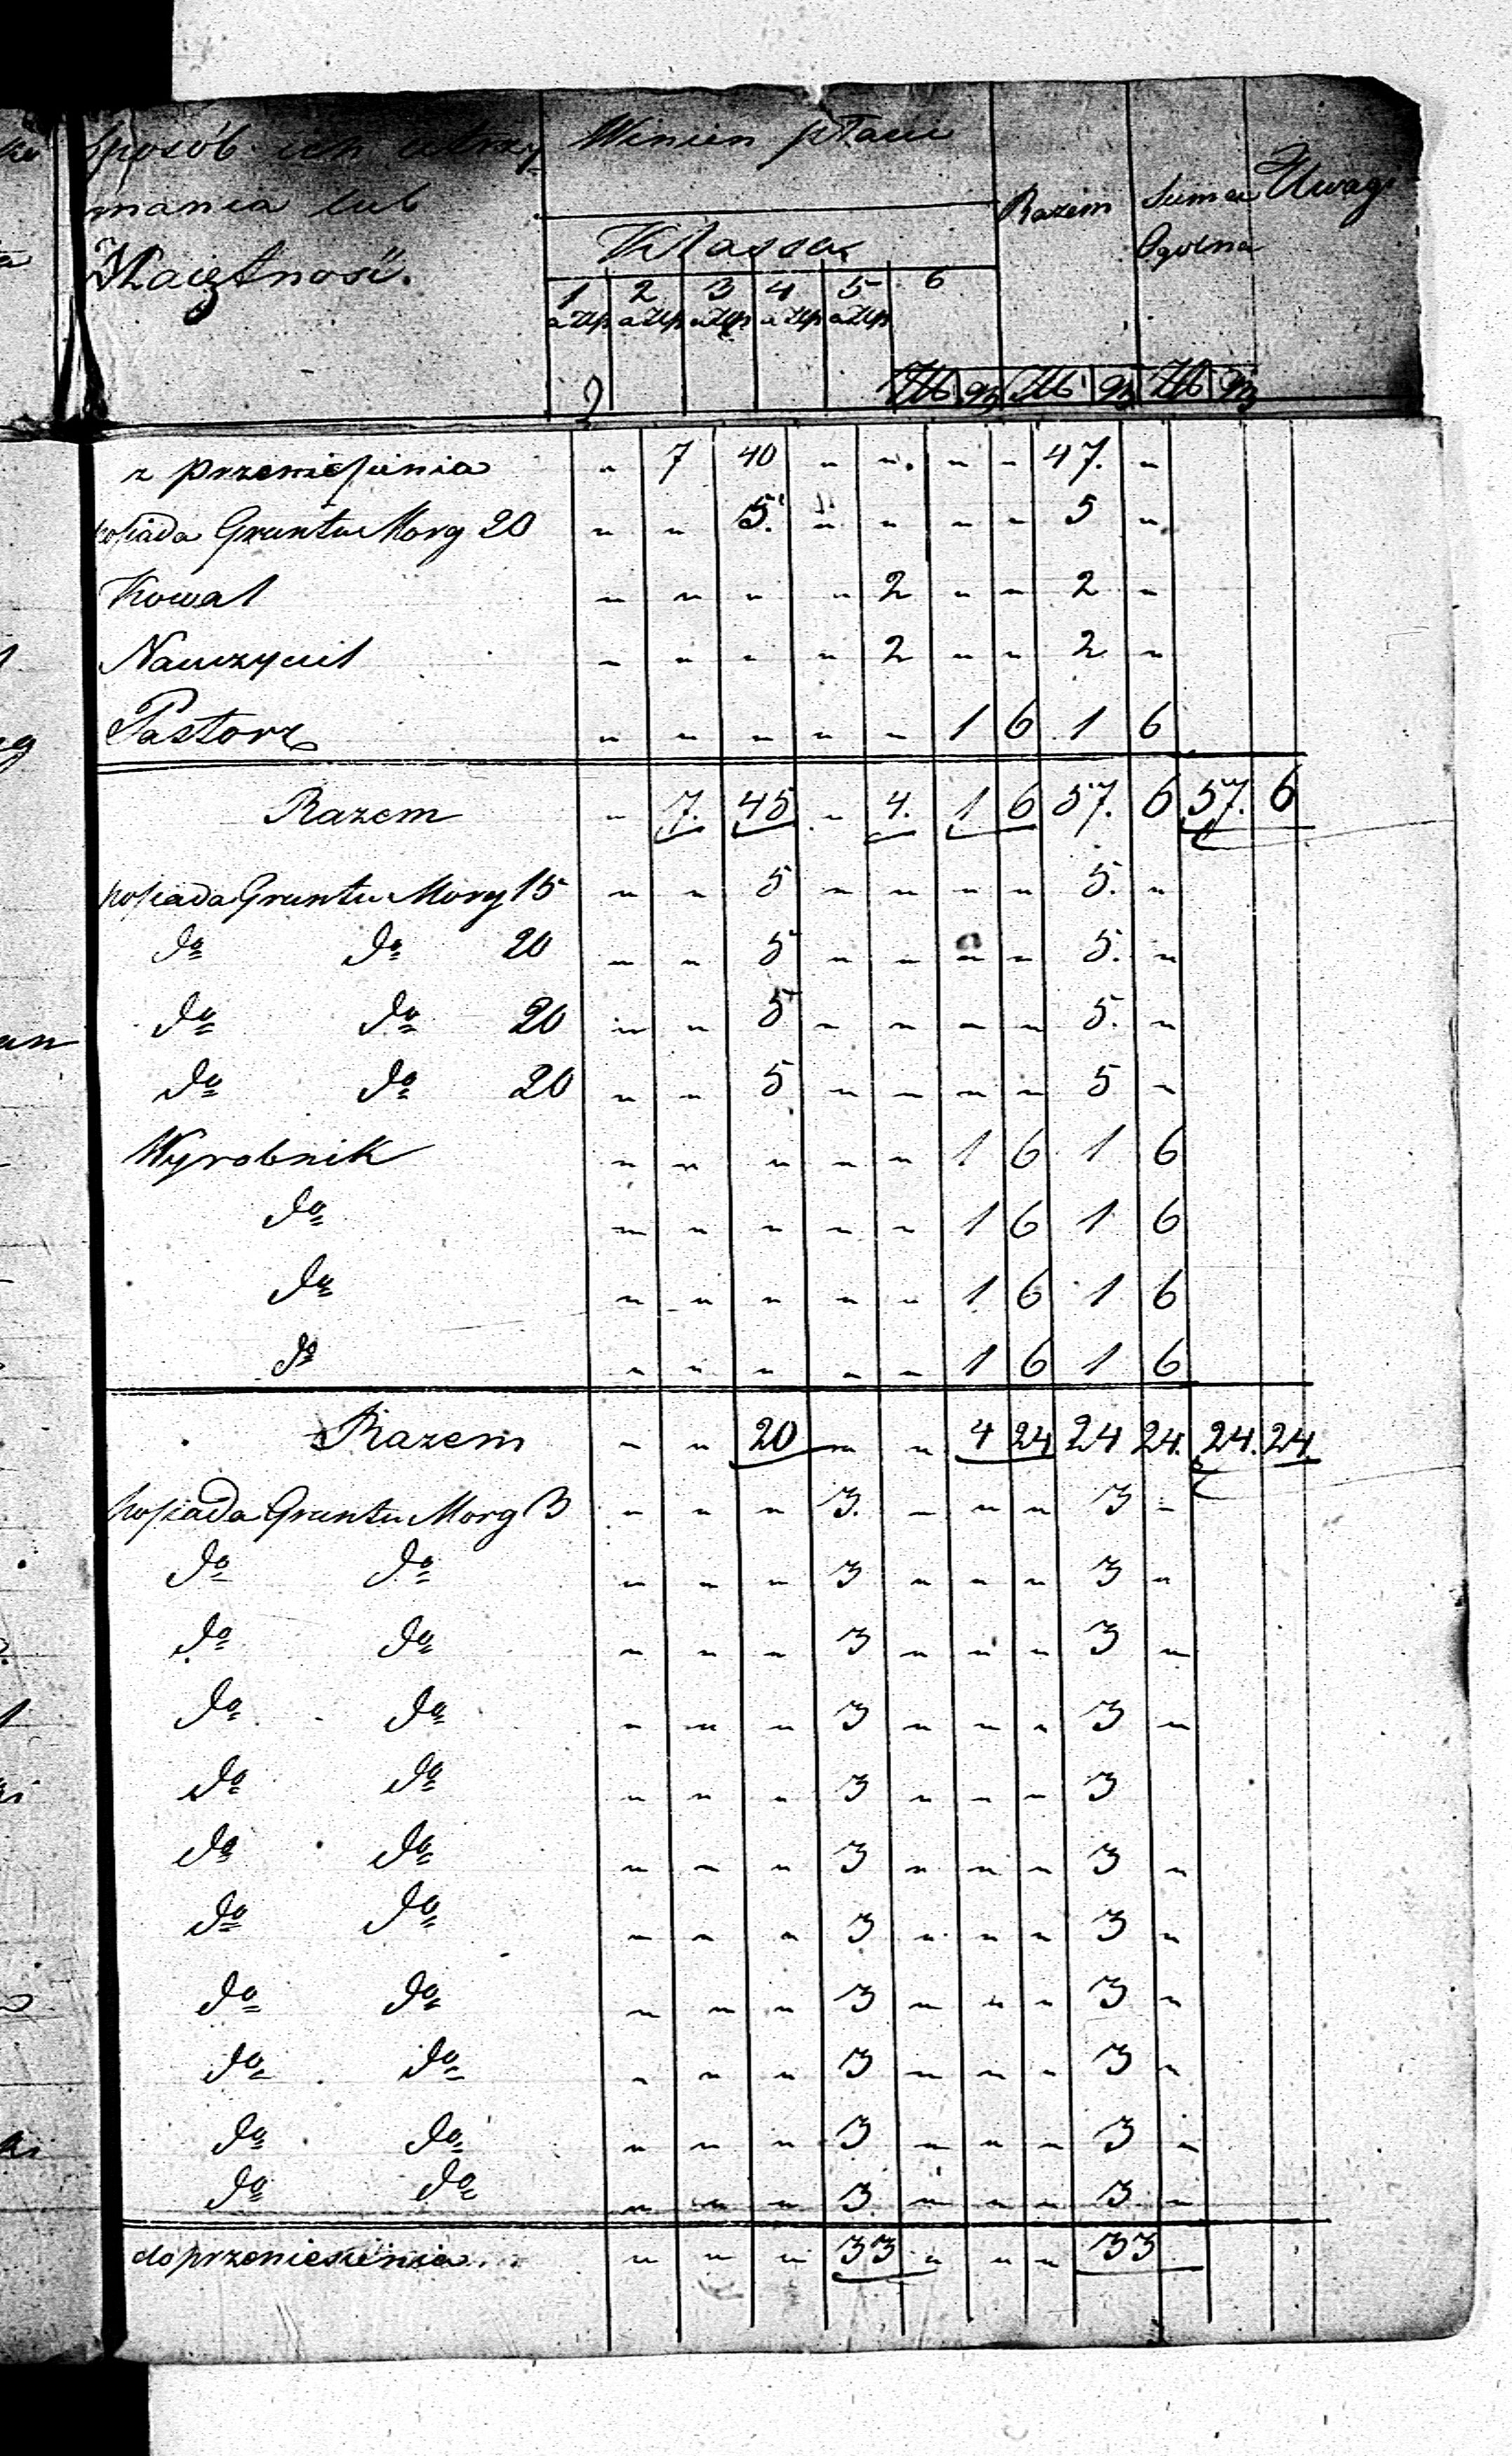 Sposób ich utrzy
mania lub
Majętność.
Winien płacić
Klassa
1 2 3 4 5 6
a Złp a Złp a Złp a Złp a Złp
Razem
Summa
Ogólna
Uwagi
Złt gr Złt gr Złt gr
z przeniesienia " 7 40 " " " " 47. "
posiada Gruntu Morg 20 " " 5. " " " " 5 "
Kowal " " " " 2 " " 2 "
Nauczyciel " " " " 2 " " 2 "
Pastorz " " " " " 1 6 1 6
Razem " 7. 45 " 4. 1 6 57. 6 57. 6
posiada Gruntu Morg 15 " " 5 " " " " 5. "
do do 20 " " 5 " " " " 5. "
do do 20 " " 5 " " " " 5. "
do do 20 " " 5 " " " " 5 "
Wyrobnik " " " " " 1 6 1 6
do " " " " " 1 6 1 6
do " " " " " 1 6 1 6
do " " " " " 1 6 1 6
Razem " " 20 " " 4 24 24 24. 24. 24.
posiada Gruntu Morg 3 " " " 3. " " " 3 "
do do " " " 3 " " " 3 "
do do " " " 3 " " " 3 "
do do " " " 3 " " " 3 "
do do " " " 3 " " " 3
do do " " " 3 " " " 3 "
do do " " " 3 " " " 3 "
do do " " " 3 " " " 3 "
do do " " " 3 " " " 3 "
do do " " " 3 " " " 3 "
do do " " " 3. " " " 3 "
do przeniesienia " " " 33 " " " 33